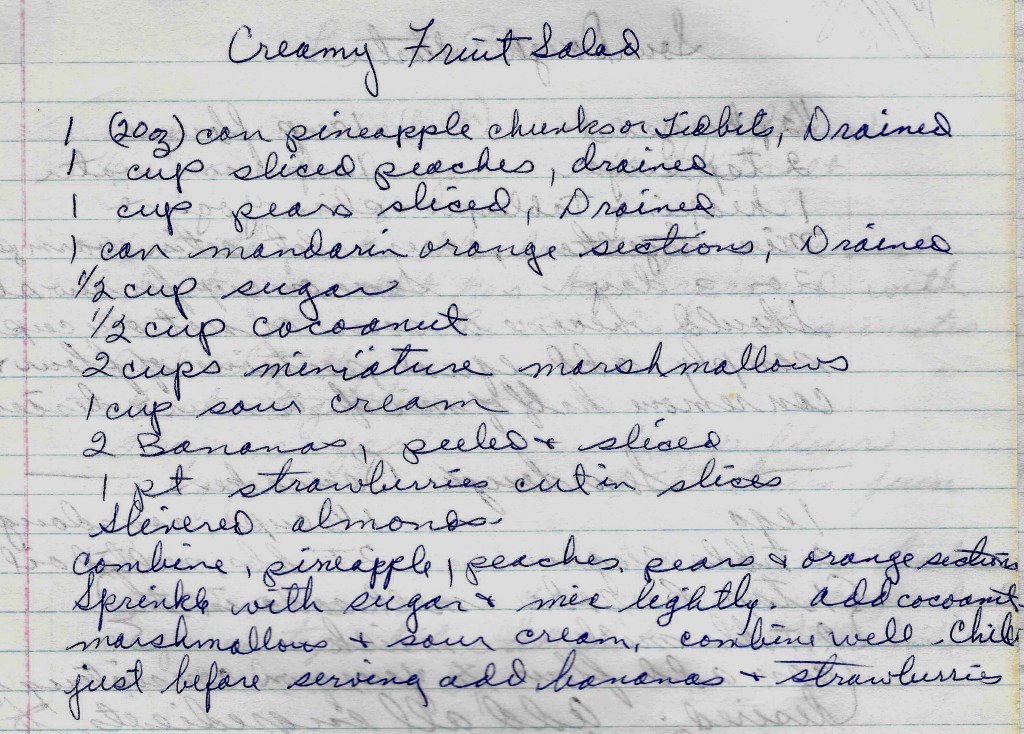 Creamy Fruit Salad
1 (20oz) can pineapple chunks or Tidbits, Drained
1 cup sliced peaches, drained
1 cup pears sliced, Drained
1 can mandarin orange sections, Drained
1/2 cup sugar
1/2 cup cocoanut
2 cups miniature marshmallows
1 cup sour cream
2 Bananas, peeled + sliced
1 pt strawberries cut in slices
Slivered almonds
Combine, pineapple, peaches, pears + orange sections
Sprinkle with sugar + mix lightly. Add cocoanut
marshmallows + sour cream, combine well. Chill
just before serving add bananas + strawberries